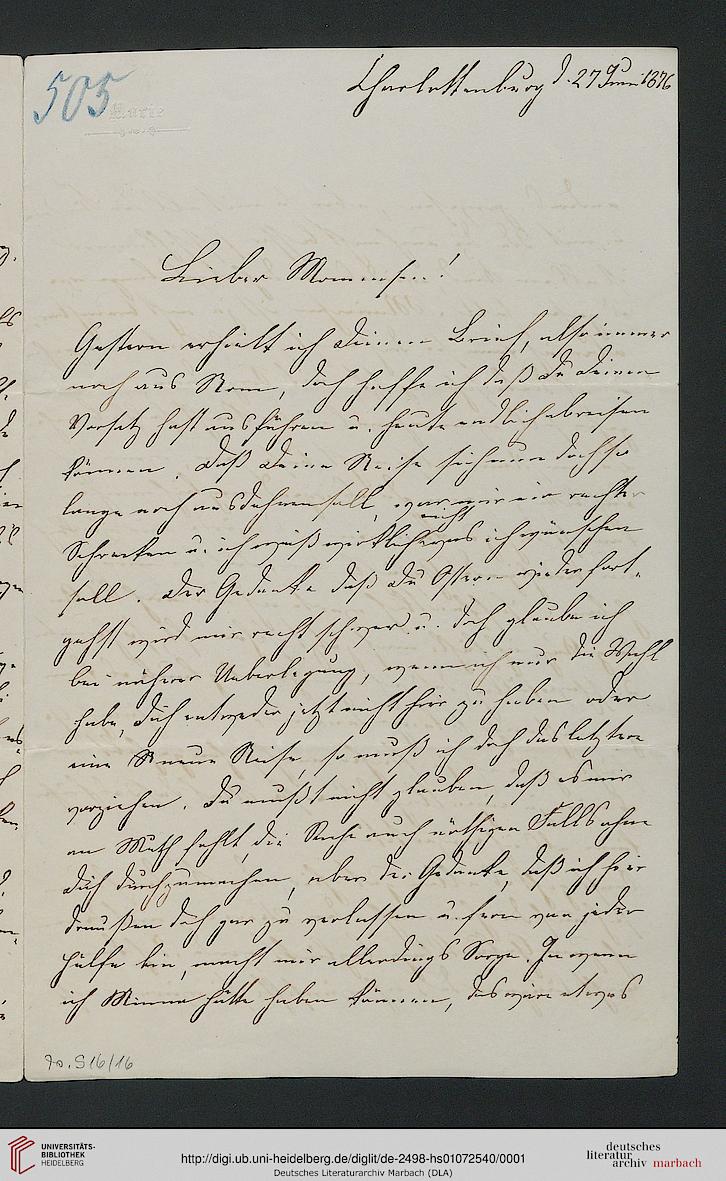 505
Marie
Charlottenburg d. 27 Juni 1876
Lieber Mommsen!
Gestern erhielt ich Deinen Brief, also immer
noch aus Rom, doch hoffe ich daß Du Deinen
Vorsatz hast ausführen u. heute endlich abreisen
können. Daß Deine Reise sich nun doch so
lange noch ausdehnen soll, war mir ein rechter
Schrecken u. ich weiß wirklich nicht was ich wünschen
soll. Der Gedanke daß Du Ostern wieder fort-
gehst wird mir recht schwer u. doch glaube ich
bei näherer Ueberlegung, wenn ich nur die Wahl
habe, Dich entweder jetzt nicht hier zu haben oder
eine neue Reise, so muß ich doch das letztere
vorziehen. Du mußt nicht glauben, daß es mir
an Muth fehlt, die Sache auch nöthigen Falls ohne
Dich durchzumachen, aber der Gedanke, daß ich hier
draußen doch gar zu verlassen u. fern von jeder
Hülfe bin, macht mir allerdings Sorge. Ja wenn
ich Minna hätte haben können, das wäre etwas
70.516/16
UNIVERSITÄTS-
BIBLIOTHEK
HEIDELBERG
http://digi.ub.uni-heidelberg.de/diglit/de-2498-hs01072540/0001
Deutsches Literaturarchiv Marbach (DLA)
deutsches
literatur
archiv marbach